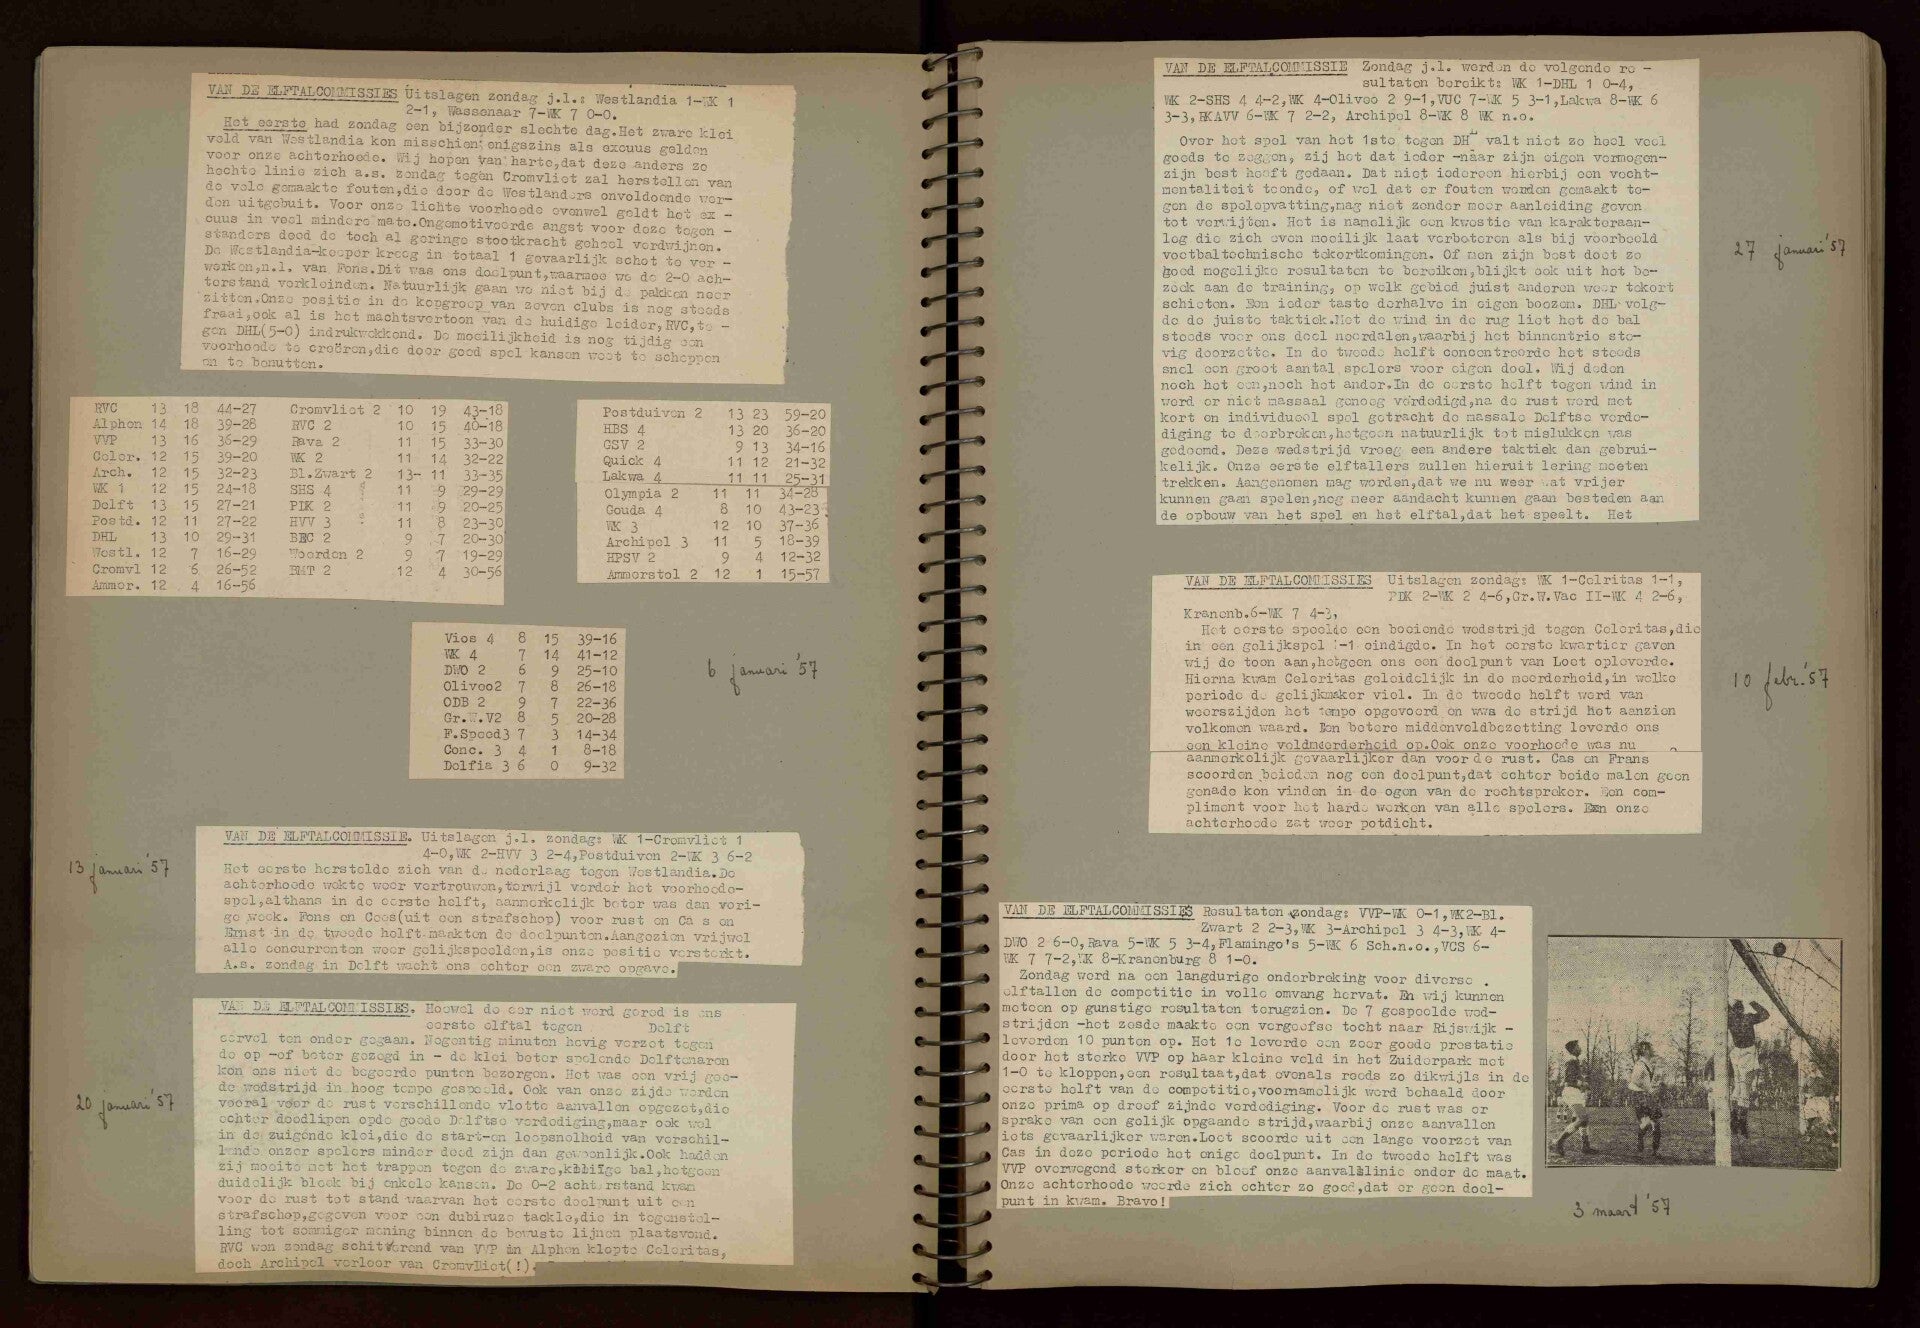 VAN DE ELFTALCOMMISSIES Uitslagen zondag j.l.: Westlandia 1-WK 1
2-1, Wassenaar 7-WK 7 0-0.
Het eerste had zondag een bijzonder slechte dag.Het zware klei
veld van Westlandia kon misschien enigszins als excuus gelden
voor onze achterhoede. Wij hopen van harte,dat deze anders zo
hechte linie zich a.s. zondag tegen Cromvliet zal herstellen van
de vele gemaakte fouten,die door de Westlanders onvoldoende wer-
den uitgebuit. Voor onze lichte voorhoede evenwel geldt het ex -
cuus in veel mindere mate.Ongemotiveerde angst voor deze tegen -
standers deed de toch al geringe stootkracht geheel verdwijnen.
De Westlandia-keeper kreeg in totaal 1 gevaarlijk schot te ver -
werken,n.l. van Fons.Dit was ons doelpunt,waarmee we de 2-0 ach-
terstand verkleinden. Natuurlijk gaan we niet bij de pakken neer
zitten.Onze positie in de kopgroep van zeven clubs is nog steeds
fraai,ook al is het machtsvertoon van de huidige leider,RVC,te -
gen DHL(5-0) indrukwekkend. De moeilijkheid is nog tijdig een
voorhoede te creëren,die door goed spel kansen weet te scheppen
en te benutten.
RVC 13 18 44-27 Cromvliet 2 10 19 43-18
Alphen 14 18 39-28 RVC 2 10 15 40-18
VVP 13 16 36-29 Rava 2 11 15 33-30
Celer. 12 15 39-20 WK 2 11 14 32-22
Arch. 12 15 32-23 Bl.Zwart 2 13- 11 33-35
WK 1 12 15 24-18 SHS 4 11 9 29-29
Delft 13 15 27-21 PDK 2 11 9 20-25
Postd. 12 11 27-22 HVV 3 11 8 23-30
DHL 13 10 29-31 BEC 2 9 7 20-30
Westl. 12 7 16-29 Woerden 2 9 7 19-29
Cromvl 12 6 26-52 BMT 2 12 4 30-56
Ammer. 12 4 16-56
Postduiven 2 13 23 59-20
HBS 4 13 20 36-20
GSV 2 9 13 34-16
Quick 4 11 12 21-32
Lakwa 4 11 11 25-31
Olympia 2 11 11 34-28
Gouda 4 8 10 43-23
WK 3 12 10 37-36
Archipel 3 11 5 18-39
HPSV 2 9 4 12-32
Ammerstol 2 12 1 15-57
Vios 4 8 15 39-16
WK 4 7 14 41-12
DWO 2 6 9 25-10
Oliveo2 7 8 26-18
ODB 2 9 7 22-36
Gr.W.V2 8 5 20-28
F.Speed3 7 3 14-34
Conc. 3 4 1 8-18
Delfia 3 6 0 9-32
6 januari '57
VAN DE ELFTALCOMMISSIE. Uitslagen j.l. zondag: WK 1-Cromvliet 1
4-0,WK 2-HVV 3 2-4,Postduiven 2-WK 3 6-2
Het eerste herstelde zich van de nederlaag tegen Westlandia.De
achterhoede wekte weer vertrouwen,terwijl verder het voorhoede-
spel,althans in de eerste helft, aanmerkelijk beter was dan vori-
ge week. Fons en Cees(uit een strafschop) voor rust en Ca s en
Ernst in de tweede helft maakten de doelpunten.Aangezien vrijwel
alle concurrenten weer gelijkspeelden,is onze positie versterkt.
A.s. zondag in Delft wacht ons echter een zware opgave.
13 januari '57
VAN DE ELFTALCOMMISSIES. Hoewel de eer niet werd gered is ons
eerste elftal tegen Delft
eervol ten onder gegaan. Negentig minuten hevig verzet tegen
de op -of beter gezegd in - de klei beter spelende Delftenaren
kon ons niet de begeerde punten bezorgen. Het was een vrij goe-
de wedstrijd in hoog tempo gespeeld. Ook van onze zijde werden
vooral voor de rust verschillende vlotte aanvallen opgezet,die
echter doodliepen opde goede Delftse verdediging,maar ook wel
in de zuigende klei,die de start-en loopsnelheid van verschil-
lende onzer spelers minder deed zijn dan gewoonlijk.Ook hadden
zij moeite met het trappen tegen de zware,kleiïge bal,hetgeen
duidelijk bleek bij enkele kansen. De 0-2 achterstand kwam
voor de rust tot stand waarvan het eerste doelpunt uit een
strafschop,gegeven voor een dubieuze tackle,die in tegenstel-
ling tot sommiger mening binnen de bewuste lijnen plaatsvond.
RVC won zondag schitterend van VVP in Alphen klopte Celeritas,
doch Archipel verloor van Cromvliet(!).
20 januari '57
VAN DE ELFTALCOMMISSIE Zondag j.l. werden de volgende re -
sultaten bereikt: WK 1-DHL 1 0-4,
WK 2-SHS 4 4-2,WK 4-Oliveo 2 9-1,VUC 7-WK 5 3-1,Lakwa 8-WK 6
3-3,RKAVV 6-WK 7 2-2, Archipel 8-WK 8 WK n.o.
Over het spel van het 1ste tegen DHL valt niet zo heel veel
goeds te zeggen, zij het dat ieder -naar zijn eigen vermogen-
zijn best heeft gedaan. Dat niet iedereen hierbij een vecht-
mentaliteit toonde, of wel dat er fouten werden gemaakt te-
gen de spelopvatting,mag niet zonder meer aanleiding geven
tot verwijten. Het is namelijk een kwestie van karakteraan-
leg die zich even moeilijk laat verbeteren als bij voorbeeld
voetbaltechnische tekortkomingen. Of men zijn best doet zo
goed mogelijke resultaten te bereiken,blijkt ook uit het be-
zoek aan de training, op welk gebied juist anderen weer tekort
schieten. Een ieder taste derhalve in eigen boezem. DHL volg-
de de juiste taktiek.Met de wind in de rug liet het de bal
steeds voor ons doel neerdalen,waarbij het binnentrio ste-
vig doorzette. In de tweede helft concentreerde het steeds
snel een groot aantal spelers voor eigen doel. Wij deden
noch het een,noch het ander.In de eerste helft tegen wind in
werd er niet massaal genoeg verdedigd,na de rust werd met
kort en individueel spel getracht de massale Delftse verde-
diging te doorbreken,hetgeen natuurlijk tot mislukken was
gedoemd. Deze wedstrijd vroeg een andere taktiek dan gebrui-
kelijk. Onze eerste elftallers zullen hieruit lering moeten
trekken. Aangenomen mag worden,dat we nu weer wat vrijer
kunnen gaan spelen,nog meer aandacht kunnen gaan besteden aan
de opbouw van het spel en het elftal,dat het speelt. Het
27 januari '57
VAN DE ELFTALCOMMISSIES Uitslagen zondag: WK 1-Celritas 1-1,
PDK 2-WK 2 4-6,Gr.W.Vac II-WK 4 2-6,
Kranenb.6-WK 7 4-3,
Het eerste speelde een boeiende wedstrijd tegen Celeritas,die
in een gelijkspel 1-1 eindigde. In het eerste kwartier gaven
wij de toon aan,hetgeen ons een doelpunt van Loet opleverde.
Hierna kwam Celeritas geleidelijk in de meerderheid,in welke
periode de gelijkmaker viel. In de tweede helft werd van
weerszijden het tempo opgevoerd en wwa de strijd het aanzien
volkomen waard. Een betere middenveldbezetting leverde ons
een kleine veldmeerderheid op.Ook onze voorhoede was nu
aanmerkelijk gevaarlijker dan voor de rust. Cas en Frans
scoorden beieden nog een doelpunt,dat echter beide malen geen
genade kon vinden in de ogen van de rechtspreker. Een com-
pliment voor het harde werken van alle spelers. Een onze
achterhoede zat weer potdicht.
10 febr. '57
VAN DE ELFTALCOMMISSIES Resultaten zondag: VVP-WK 0-1,WK2-Bl.
Zwart 2 2-3,WK 3-Archipel 3 4-3,WK 4-
DWO 2 6-0,Rava 5-WK 5 3-4,Flamingo's 5-WK 6 Sch.n.o.,VCS 6-
WK 7 7-2,WK 8-Kranenburg 8 1-0.
Zondag werd na een langdurige onderbreking voor diverse
elftallen de competitie in volle omvang hervat. En wij kunnen
meteen op gunstige resultaten terugzien. De 7 gespeelde wed-
strijden -het zesde maakte een vergeefse tocht naar Rijswijk -
leverden 10 punten op. Het 1e leverde een zeer goede prestatie
door het sterke VVP op haar kleine veld in het Zuiderpark met
1-0 te kloppen,een resultaat,dat evenals reeds zo dikwijls in de
eerste helft van de competitie,voornamelijk werd behaald door
onze prima op dreef zijnde verdediging. Voor de rust was er
sprake van een gelijk opgaande strijd,waarbij onze aanvallen
iets gevaarlijker waren.Loet scoorde uit een lange voorzet van
Cas in deze periode het enige doelpunt. In de tweede helft was
VVP overwegend sterker en bleef onze aanvallinie onder de maat.
Onze achterhoede weerde zich echter zo goed,dat er geen doel-
punt in kwam. Bravo!
3 maart '57